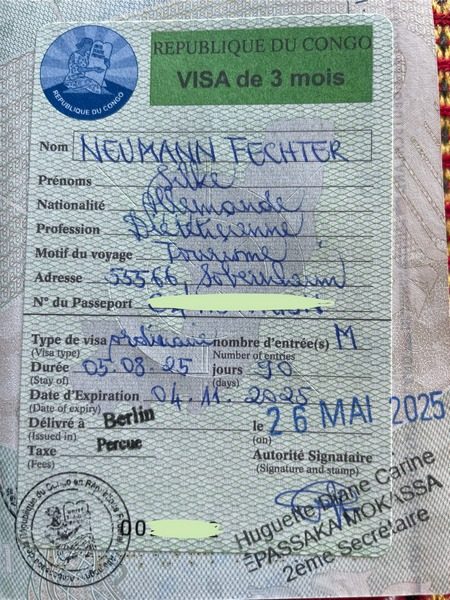 REPUBLIQUE DU CONGO
REPUBLIQUE DU CONGO
VISA de 3 mois
Nom NEUMANN FECHTER
Prénoms Silke
Nationalité Allemande
Profession Diététicienne
Motif du voyage Tourisme
Adresse 55566, Sobernheim
N° du Passeport
Type de visa ordinaire nombre d'entrée(s) M
(Visa type) Number of entries
Durée 05.08.25 jours 90
(Stay of) (days)
Date d'Expiration 04.11.2025
(Date of expiry)
Délivré à Berlin le 26 MAI 2025
(Issued in) (on)
Taxe Percue Autorité Signataire
(Fees) (Signature and stamp)
00
Huguette Diane Carine
EPASSAKA MOKASSA
2ème Secrétaire